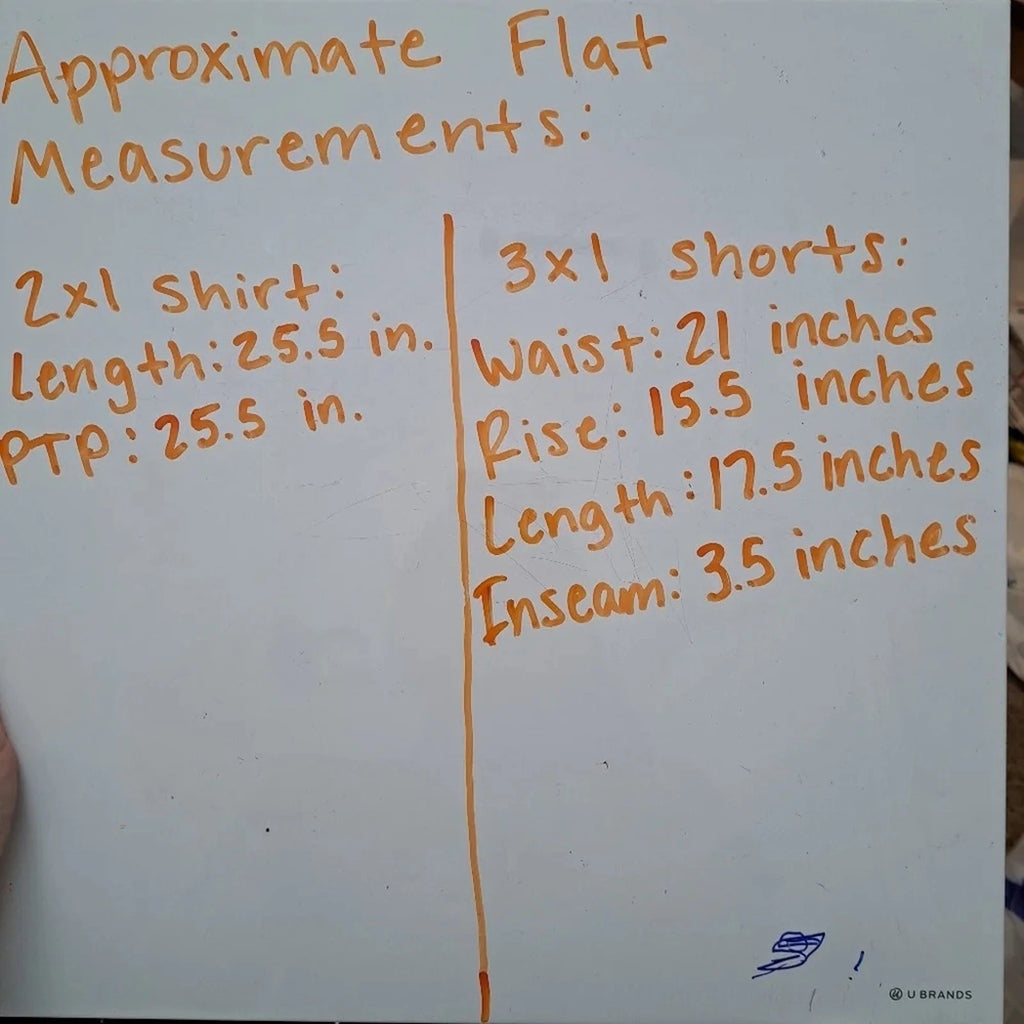 Approximate Flat
Measurements:
2x1 shirt:
Length: 25.5 in.
PTP: 25.5 in.
3x1 shorts:
Waist: 21 inches
Rise: 15.5 inches
Length: 17.5 inches
Inseam: 3.5 inches
U BRANDS